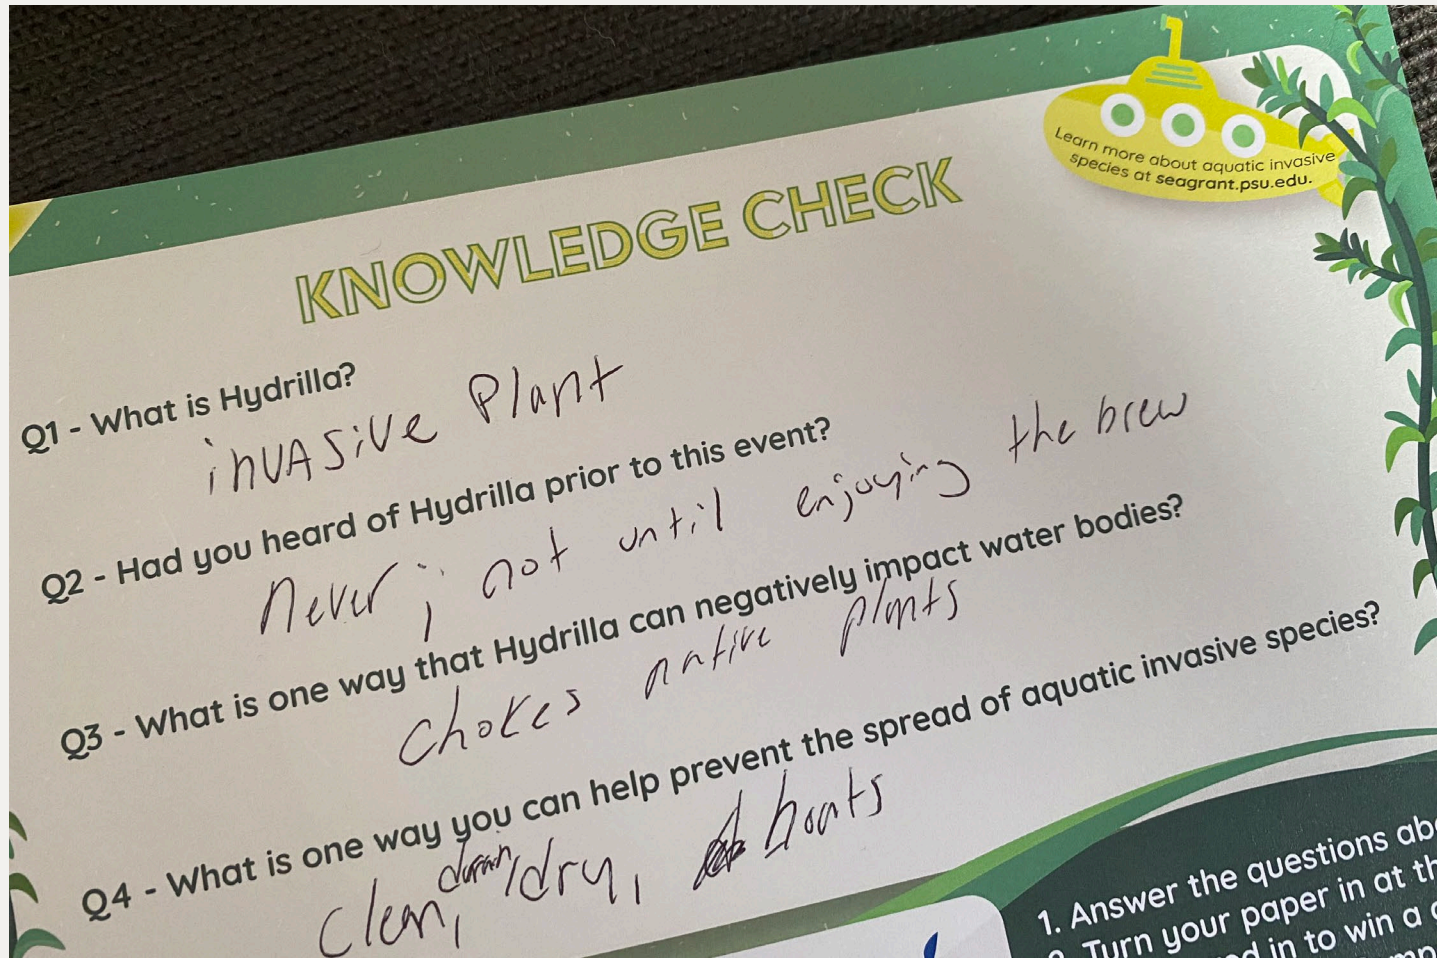 Learn more about aquatic invasive
species at seagrant.psu.edu.
KNOWLEDGE CHECK
Q1 - What is Hydrilla?
invasive Plant
Q2 - Had you heard of Hydrilla prior to this event?
never; not until enjoying the brew
Q3 - What is one way that Hydrilla can negatively impact water bodies?
chokes native plants
Q4 - What is one way you can help prevent the spread of aquatic invasive species?
drain
Clean, dry, boats
1. Answer the questions
Turn your paper in at
in to win a